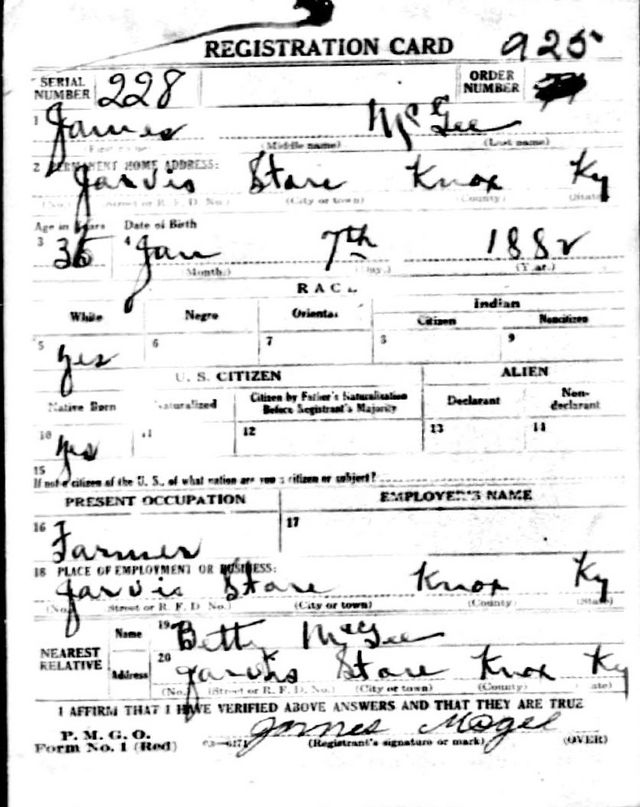 REGISTRATION CARD 925
SERIAL NUMBER 228 ORDER NUMBER
1 James McGee
(Middle name) (Last name)
2 PERMANENT HOME ADDRESS:
Jarvis Store Knox Ky
(No.) (Street or R. F. D. No.) (City or town) (County) (State)
Age in Years Date of Birth
3 36 4 Jan 7th 1882
(Month.) (Day.) (Year.)
RACE
White Negro Oriental Indian
Citizen Noncitizen
5 Yes 6 7 8 9
U. S. CITIZEN ALIEN
Native Born Naturalized Citizen by Father's Naturalization Before Registrant's Majority Declarant Non-declarant
10 Yes 11 12 13 14
15
If not a citizen of the U. S., of what nation are you a citizen or subject?
PRESENT OCCUPATION EMPLOYER'S NAME
16 Farmer 17
18 PLACE OF EMPLOYMENT OR BUSINESS:
Jarvis Store Knox Ky
(No.) (Street or R. F. D. No.) (City or town) (County) (State)
NEAREST RELATIVE Name 19 Betty McGee
Address 20 Jarvis Store Knox Ky
(No.) (Street or R. F. D. No.) (City or town) (County) (State)
I AFFIRM THAT I HAVE VERIFIED ABOVE ANSWERS AND THAT THEY ARE TRUE
P. M. G. O.
Form No. 1 (Red) 03-6171 James Mcgee
(Registrant's signature or mark) (OVER)